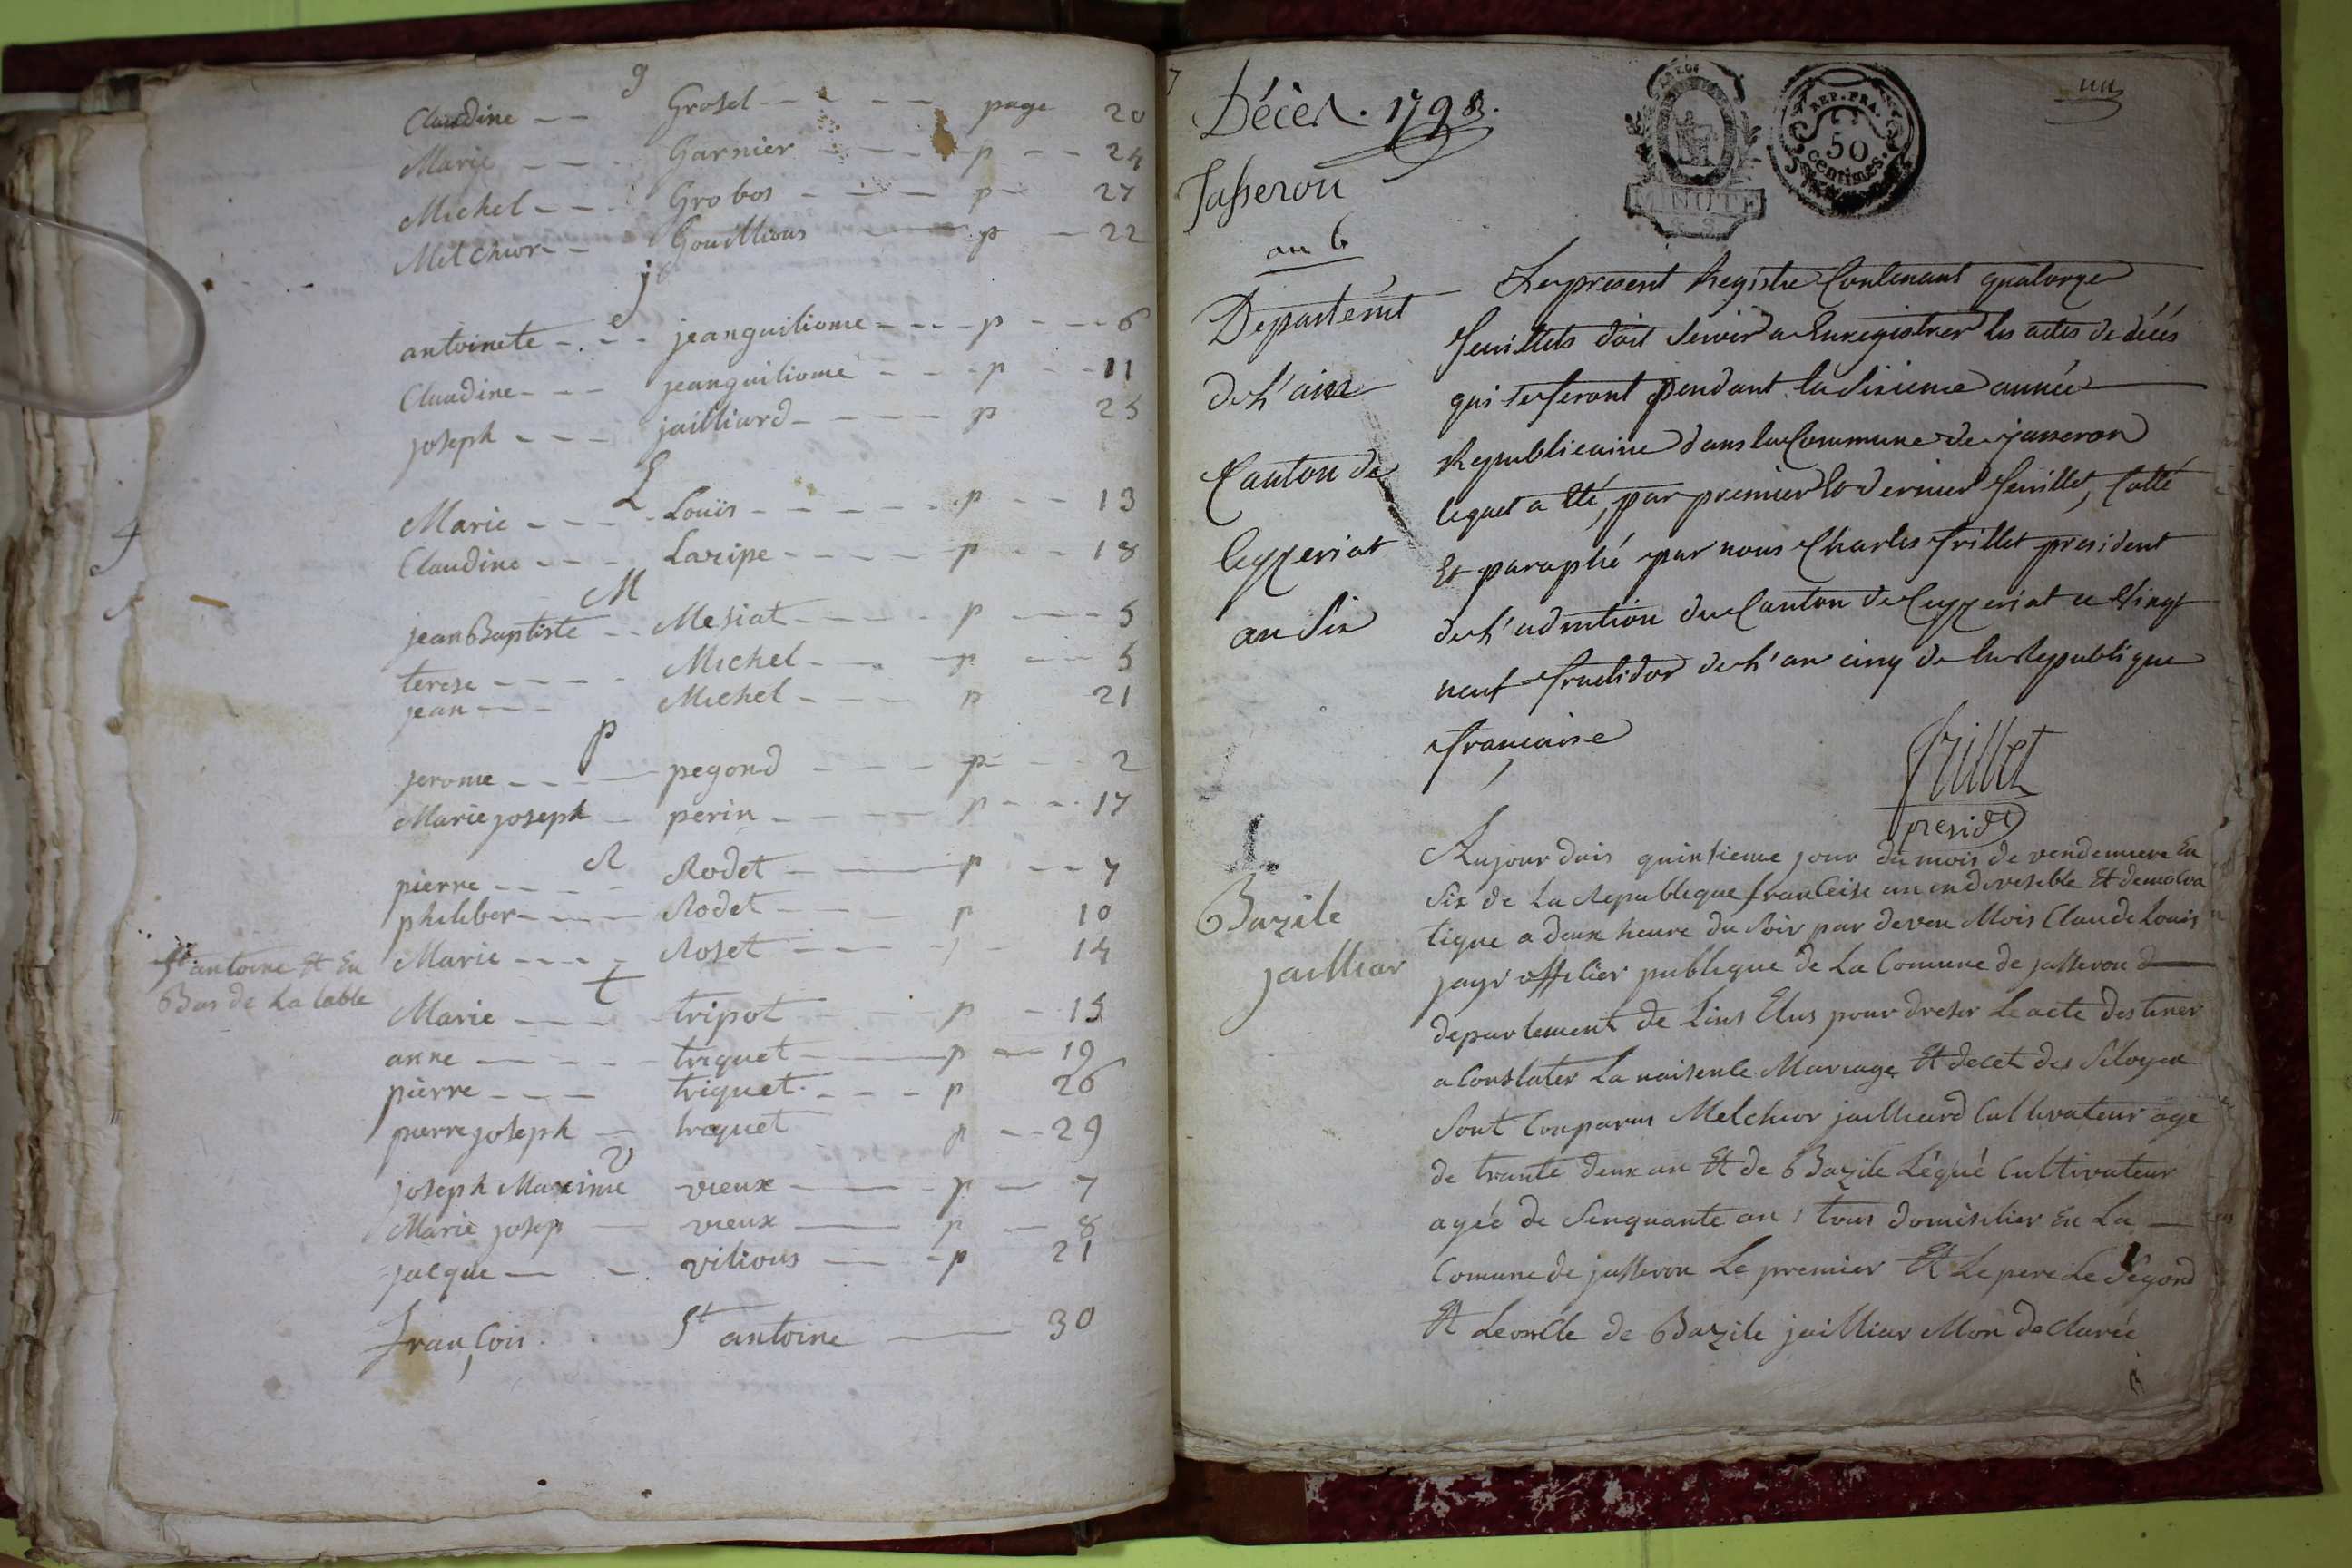 g
Claudine -- Grosel ---- page 20
Marie --- Garnier ---- p -- 24
Michel --- Grobos --- p - 27
Melchior -- Gouillious --- p - 22
j
antoinete --- jeanguiliome --- p --- 6
Claudine --- jeanguiliome --- p -- 11
joseph --- jailliard ---- p 25
L
Marie --- Louis ----- p -- 13
Claudine --- Laripe ---- p -- 18
M
jean Baptiste -- Mesiat ---- p -- 5
terese ---- Michel --- p -- 5
jean --- Michel --- p 21
p
jerome --- pegond --- p -- 2
Marie joseph - perin ---- p --- 17
R
pierre ---- Rodet --- p -- 7
philiber --- Rodet --- p 10
St antoine Et En
Bas de La table
Marie --- Roset --- p - 14
t
Marie --- tripot -- p - 15
anne --- triquet -- p -- 19
pierre --- triquet --- p 26
pierre joseph - triquet p -- 29
v
joseph Maxime vieux --- p - 7
Marie josep - vieux --- p - 8
jacque -- vilious -- p 21
françois St antoine -- 30
un
Décès. 1798.
Jasseron
an 6
MINUTE
REP. FRA.
50
centimes.
Departemt
de L'ain
Canton de
Ceyzeriat
an Six
Le present Registre Contenant quatorze
feuillets doit servir a Enregistrer les actes de décés
qui se feront pendant la sixieme année
Republicaine dans la Commune de jasseron
lequel a été, par premier Et dernier feuillet, Cotté
Et paraphé par nous Charles frillet president
de L'admtion du Canton de Ceyzeriat ce Vingt
neuf fructidor de L'an cinq de la Republique
française
frillet
presidt
Bazile
jailliar
Aujourduis quinsieme jour du mois de vendemiere En
Six de La Republique franceise un indivesible Et demolcra
tique a deux heure du Soir par deven Mois Claude Louis
jayr officier publique de La Comune de jasseron d
departement de Lins Elus pour dreser Le acte destiner
a Constater La naisence Mariage Et decet des Sitoyen
Sont Conparus Melchior jailliard Cultivateur age
de trante deux an Et de Bazile Léqué Cultivateur
agée de Senquante an, tous domisilier En La
Comune de jasseron Le premier Et Le pere Le Segond
Et Leoncle de Bazile jailliar Mon declarée